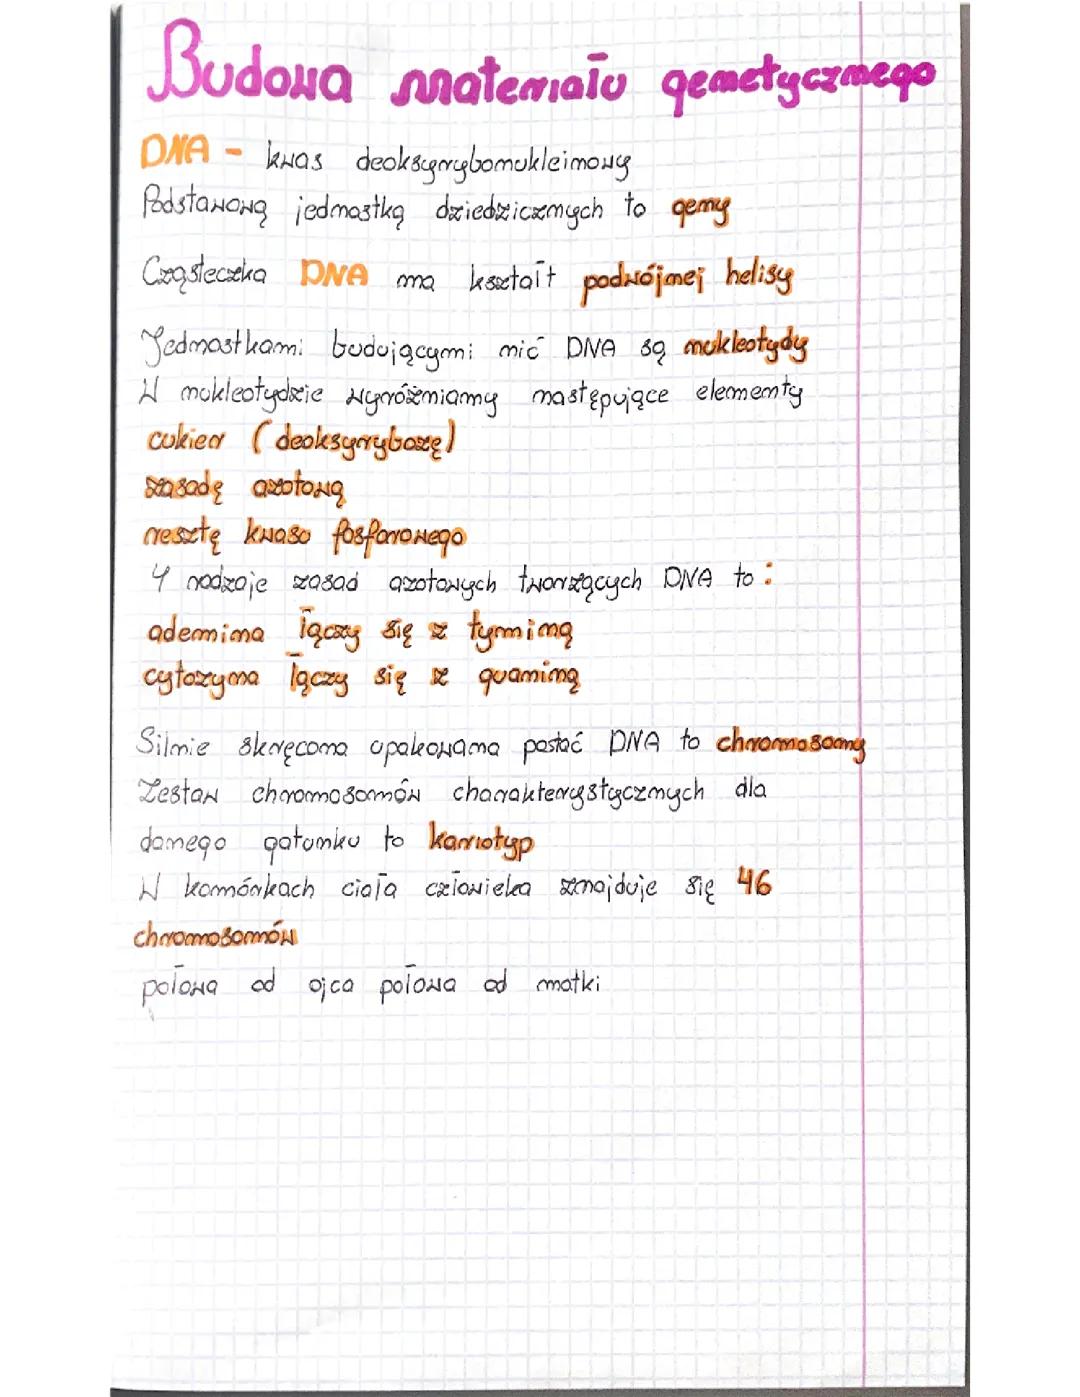 Budowa materiału genetycznego
DNA - kwas deoksyrybonukleinowy
Podstawową jednostką dziedzicznych to geny
Cząsteczka DNA ma kształt podwójnej helisy
Jednostkami budującymi nić DNA są nukleotydy
W nukleotydzie wyróżniamy następujące elementy
cukier (deoksyrybozę)
zasadę azotową
resztę kwasu fosforowego
4 rodzaje zasad azotowych tworzących DNA to:
adenina łączy się z tyminą
cytozyna łączy się z guaniną
Silnie skręcona upakowana postać DNA to chromosomy
Zestaw chromosomów charakterystycznych dla
danego gatunku to kariotyp
W komórkach ciała człowieka znajduje się 46
chromosomów
połowa od ojca połowa od matki